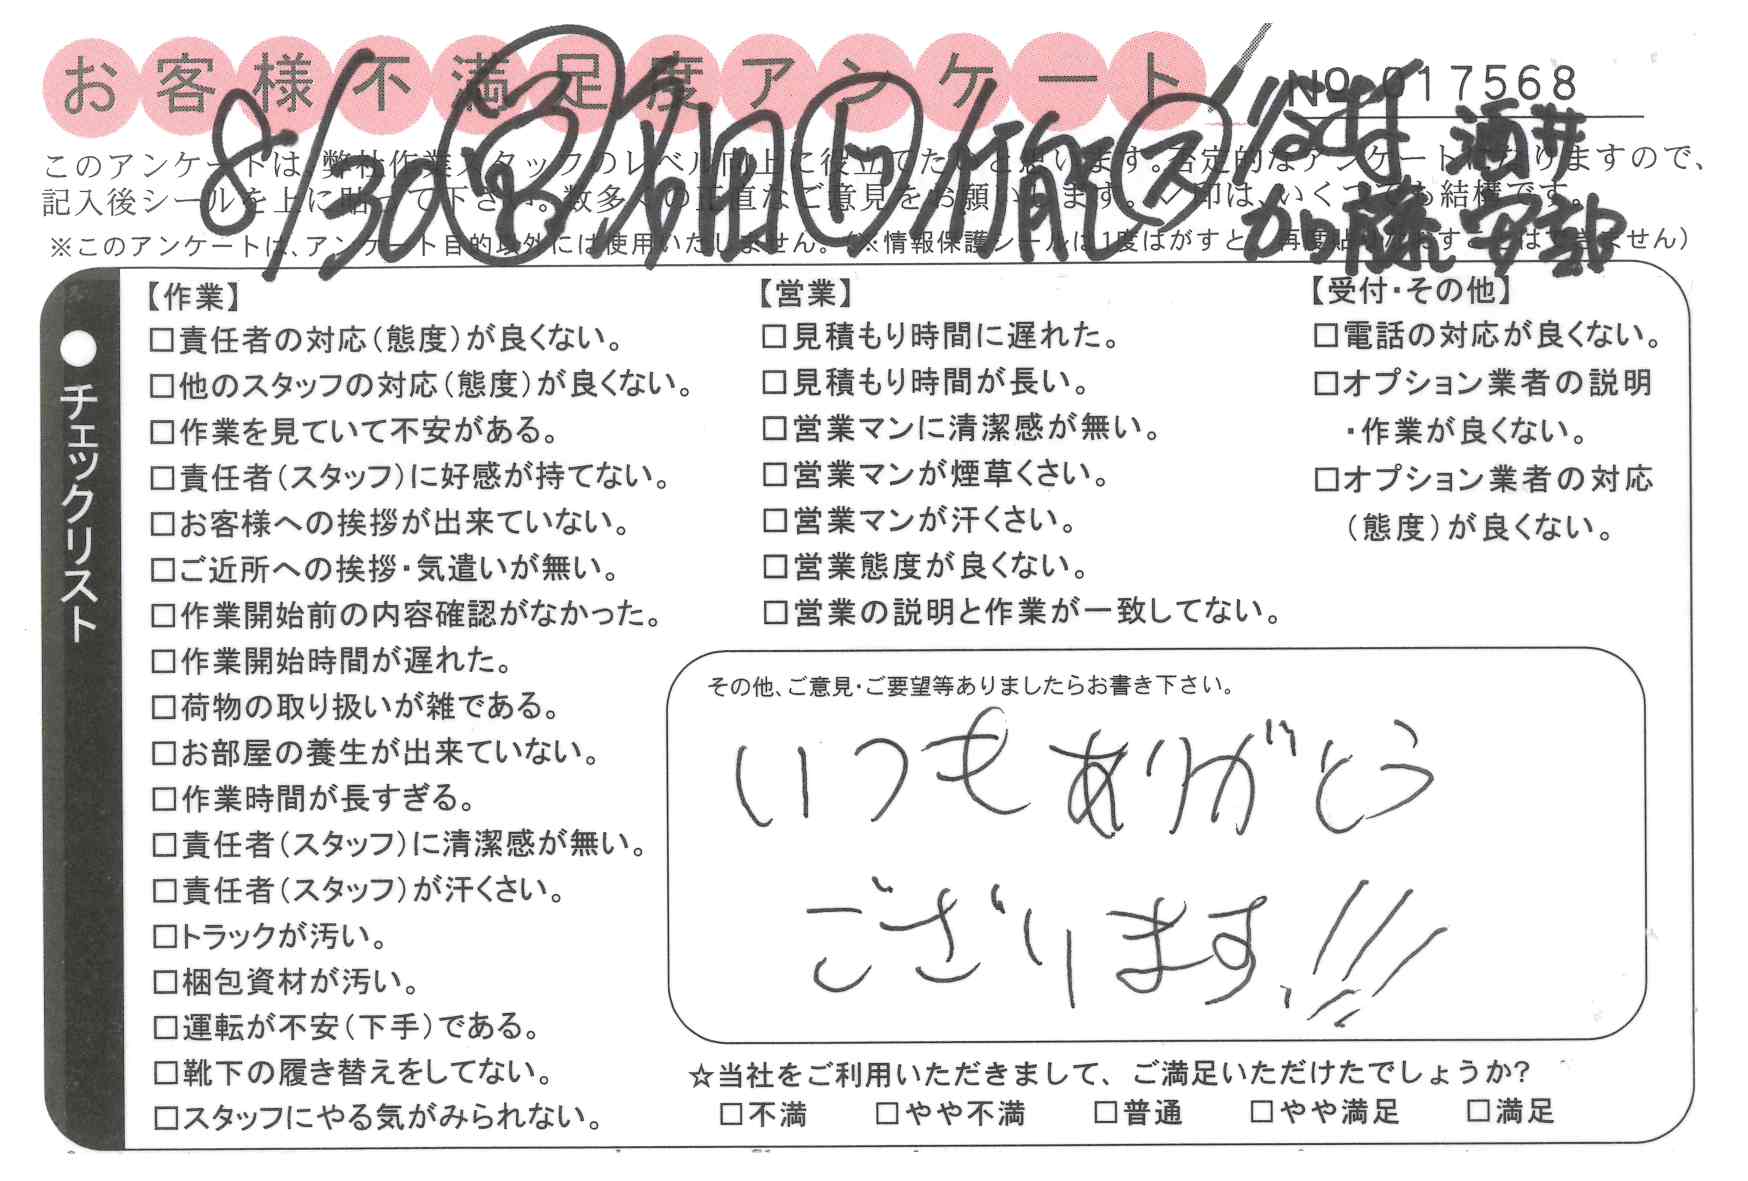 お客様不満足度アンケート
No 017568
このアンケートは、弊社作業スタッフのレベル向上に役立てたいと思います。否定的なアンケートになりますので、
記入後シールを上に貼って下さい。数多くの正直なご意見をお願いします。✓印は、いくつでも結構です。
※このアンケートは、アンケート目的以外には使用いたしません。(※情報保護シールは1度はがすと、再度貼りなおすことはできません)
8/30
谷村 酒井
加藤 安部
●チェックリスト
【作業】
□責任者の対応(態度)が良くない。
□他のスタッフの対応(態度)が良くない。
□作業を見ていて不安がある。
□責任者(スタッフ)に好感が持てない。
□お客様への挨拶が出来ていない。
□ご近所への挨拶・気遣いが無い。
□作業開始前の内容確認がなかった。
□作業開始時間が遅れた。
□荷物の取り扱いが雑である。
□お部屋の養生が出来ていない。
□作業時間が長すぎる。
□責任者(スタッフ)に清潔感が無い。
□責任者(スタッフ)が汗くさい。
□トラックが汚い。
□梱包資材が汚い。
□運転が不安(下手)である。
□靴下の履き替えをしてない。
□スタッフにやる気がみられない。
【営業】
□見積もり時間に遅れた。
□見積もり時間が長い。
□営業マンに清潔感が無い。
□営業マンが煙草くさい。
□営業マンが汗くさい。
□営業態度が良くない。
□営業の説明と作業が一致してない。
【受付・その他】
□電話の対応が良くない。
□オプション業者の説明
・作業が良くない。
□オプション業者の対応
(態度)が良くない。
その他、ご意見・ご要望等ありましたらお書き下さい。
いつもありがとう
ございます!!!
☆当社をご利用いただきまして、ご満足いただけたでしょうか?
□不満 □やや不満 □普通 □やや満足 □満足